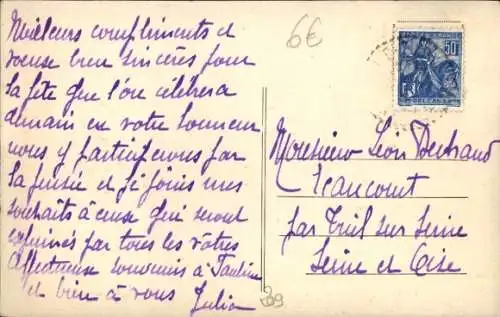 Meilleurs compliments et
voeux bien sincères pour
la fête que l'on célèbrera
demain en votre honneur
nous y participerons par
la pensée et je joins mes
souhaits à ceux qui seront
exprimés par tous les vôtres
Affectueux souvenirs à Pauline
et bien à vous Julia
6€
50
ORLEANS
Monsieur Léon Bertrand
par Triel sur Seine
Seine et Oise
29